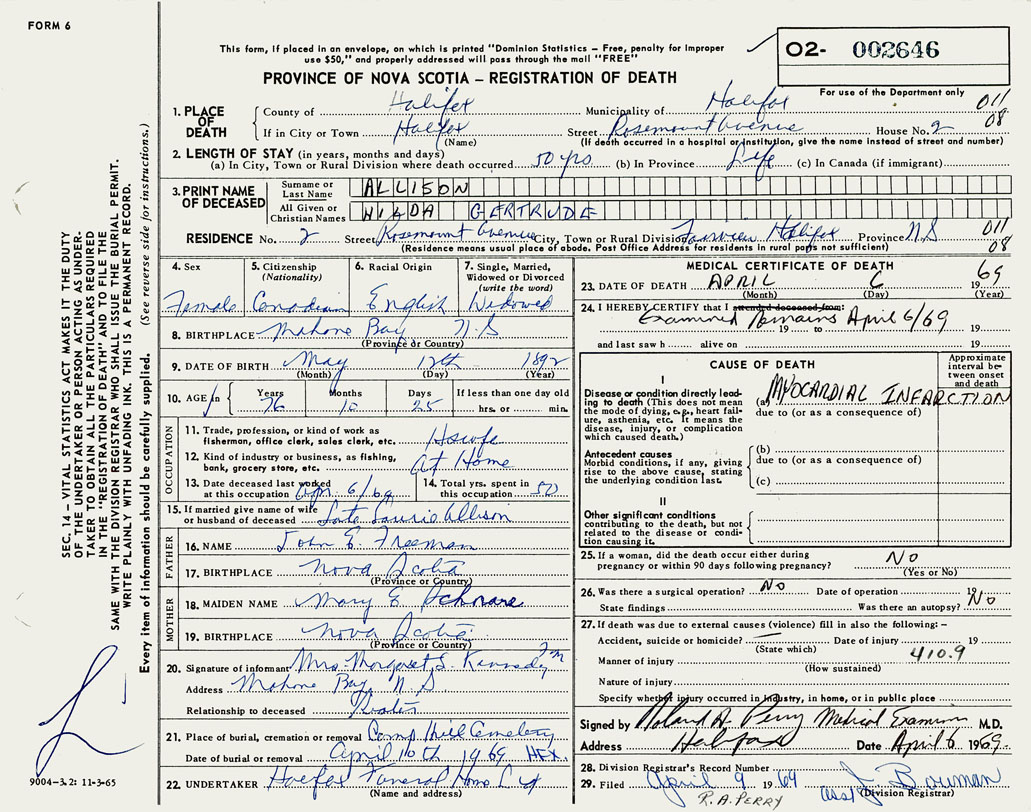 FORM 6
This form, if placed in an envelope, on which is printed "Dominion Statistics – Free, penalty for improper
use $50," and properly addressed will pass through the mail "FREE"
O2- 002646
For use of the Department only
PROVINCE OF NOVA SCOTIA – REGISTRATION OF DEATH
011
08
1. PLACE OF DEATH
County of Halifax Municipality of Halifax
If in City or Town Halifax Street Rosemount Avenue House No. 2
(Name) (If death occurred in a hospital or institution, give the name instead of street and number)
2. LENGTH OF STAY (in years, months and days)
(a) In City, Town or Rural Division where death occurred 50 yrs (b) In Province Life (c) In Canada (if immigrant)
3. PRINT NAME OF DECEASED
Surname or Last Name ALLISON
All Given or Christian Names HILDA GERTRUDE
RESIDENCE No. 2 Street Rosemount Avenue City, Town or Rural Division Fairview Halifax Province N.S
(Residence means usual place of abode. Post Office Address for residents in rural parts not sufficient)
011
08
4. Sex Female
5. Citizenship (Nationality) Canadian
6. Racial Origin English
7. Single, Married, Widowed or Divorced (write the word) Widowed
8. BIRTHPLACE Mahone Bay N.S
(Province or Country)
9. DATE OF BIRTH May 12th 1892
(Month) (Day) (Year)
10. AGE in Years 76 Months 10 Days 25 If less than one day old
hrs. or min.
OCCUPATION
11. Trade, profession, or kind of work as
fisherman, office clerk, sales clerk, etc. Hswfe
12. Kind of industry or business, as fishing,
bank, grocery store, etc. At Home
13. Date deceased last worked
at this occupation Apr 6/69
14. Total yrs. spent in
this occupation 50
15. If married give name of wife
or husband of deceased Late Laurie Allison
FATHER
16. NAME John E. Freeman
17. BIRTHPLACE Nova Scotia
(Province or Country)
MOTHER
18. MAIDEN NAME Mary E
19. BIRTHPLACE Nova Scotia
(Province or Country)
20. Signature of informant Mrs Margaret S. Kennedy
Address Mahone Bay, N.S
Relationship to deceased Sister
21. Place of burial, cremation or removal Camp Hill Cemetery
Date of burial or removal April 10th 1969 HFX
22. UNDERTAKER Halifax Funeral Home Ltd
(Name and address)
MEDICAL CERTIFICATE OF DEATH
23. DATE OF DEATH APRIL 6 1969
(Month) (Day) (Year)
24. I HEREBY CERTIFY that I attended deceased from:
Examined Remains April 6/69
19 to 19
and last saw h alive on 19
CAUSE OF DEATH
Approximate interval between onset and death
I
Disease or condition directly leading
to death (This does not mean
the mode of dying, e.g., heart failure,
asthenia, etc. It means the
disease, injury, or complication
which caused death.)
(a) MYOCARDIAL INFARCTION
due to (or as a consequence of)
Antecedent causes
Morbid conditions, if any, giving
rise to the above cause, stating
the underlying condition last.
(b)
due to (or as a consequence of)
(c)
II
Other significant conditions
contributing to the death, but not
related to the disease or condition
causing it.
25. If a woman, did the death occur either during
pregnancy or within 90 days following pregnancy? No
(Yes or No)
26. Was there a surgical operation? No Date of operation 19
State findings Was there an autopsy? No
27. If death was due to external causes (violence) fill in also the following: –
Accident, suicide or homicide? — Date of injury 19
(State which)
410.9
Manner of injury
(How sustained)
Nature of injury
Specify whether injury occurred in industry, in home, or in public place
Signed by Roland A. Perry Medical Examiner M.D.
Address Halifax Date April 6 1969
28. Division Registrar's Record Number
29. Filed April 9 1969 J. Bowman
R. A. PERRY asst (Division Registrar)
SEC. 14 – VITAL STATISTICS ACT MAKES IT THE DUTY
OF THE UNDERTAKER OR PERSON ACTING AS UNDERTAKER
TO OBTAIN ALL THE PARTICULARS REQUIRED
IN THE "REGISTRATION OF DEATH" AND TO FILE THE
SAME WITH THE DIVISION REGISTRAR WHO SHALL ISSUE THE BURIAL PERMIT.
WRITE PLAINLY WITH UNFADING INK. THIS IS A PERMANENT RECORD.
Every item of information should be carefully supplied. (See reverse side for instructions.)
9004–3.2: 11-3-65